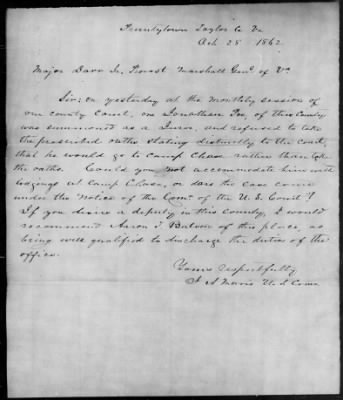 Pruntytown Taylor Co Va
Oct 28 1862
Major Darr Jr, Provost Marshall Genl of Va
Sir; on yesterday at the monthly session of
our county Court, on Jonathan Poe, of this County
was summoned as a Juror, and refused to take
the prescribed oaths stating distinctly to the court,
that he would go to Camp Chase rather than take
the oaths. Could you not accommodate him with
lodgings at Camp Chase, or does the case come
under the notice of the Com. of the U.S. Court?
If you desire a deputy in this county, I would
recommend Aaron J. of this place, as
being well qualified to discharge the duties of the
office.
Yours respectfully
U.S. Comr